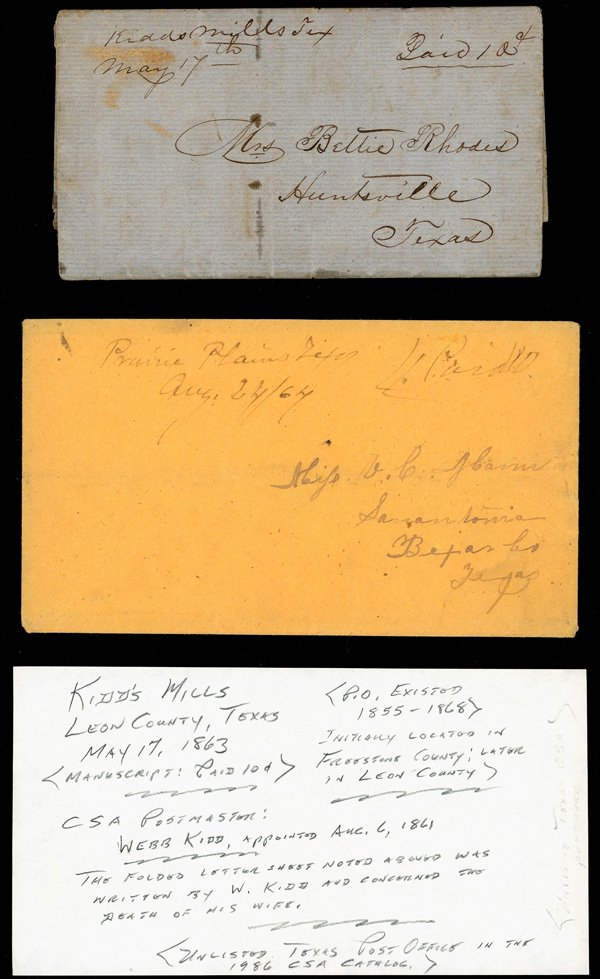 Kidds Mills Tex
May 17th
Paid 10¢
Mrs Bettie Rhodes
Huntsville
Texas
Prairie Plains Texas
Aug. 24/64
Paid 10
Miss V. C.
Sanantonia
Bexar Co
Texas
KIDD'S MILLS
LEON COUNTY, TEXAS
MAY 17, 1863
<MANUSCRIPT: PAID 10¢>
<P.O. EXISTED
1855-1868>
INITIALLY LOCATED IN
FREESTONE COUNTY; LATER
IN LEON COUNTY>
CSA POSTMASTER:
WEBB KIDD, APPOINTED AUG. 6, 1861
THE FOLDED LETTER SHEET NOTED ABOVED WAS
WRITTEN BY W. KIDD AND CONCERNED THE
DEATH OF HIS WIFE.
<UNLISTED TEXAS POST OFFICE IN THE
1986 CSA CATALOG.>